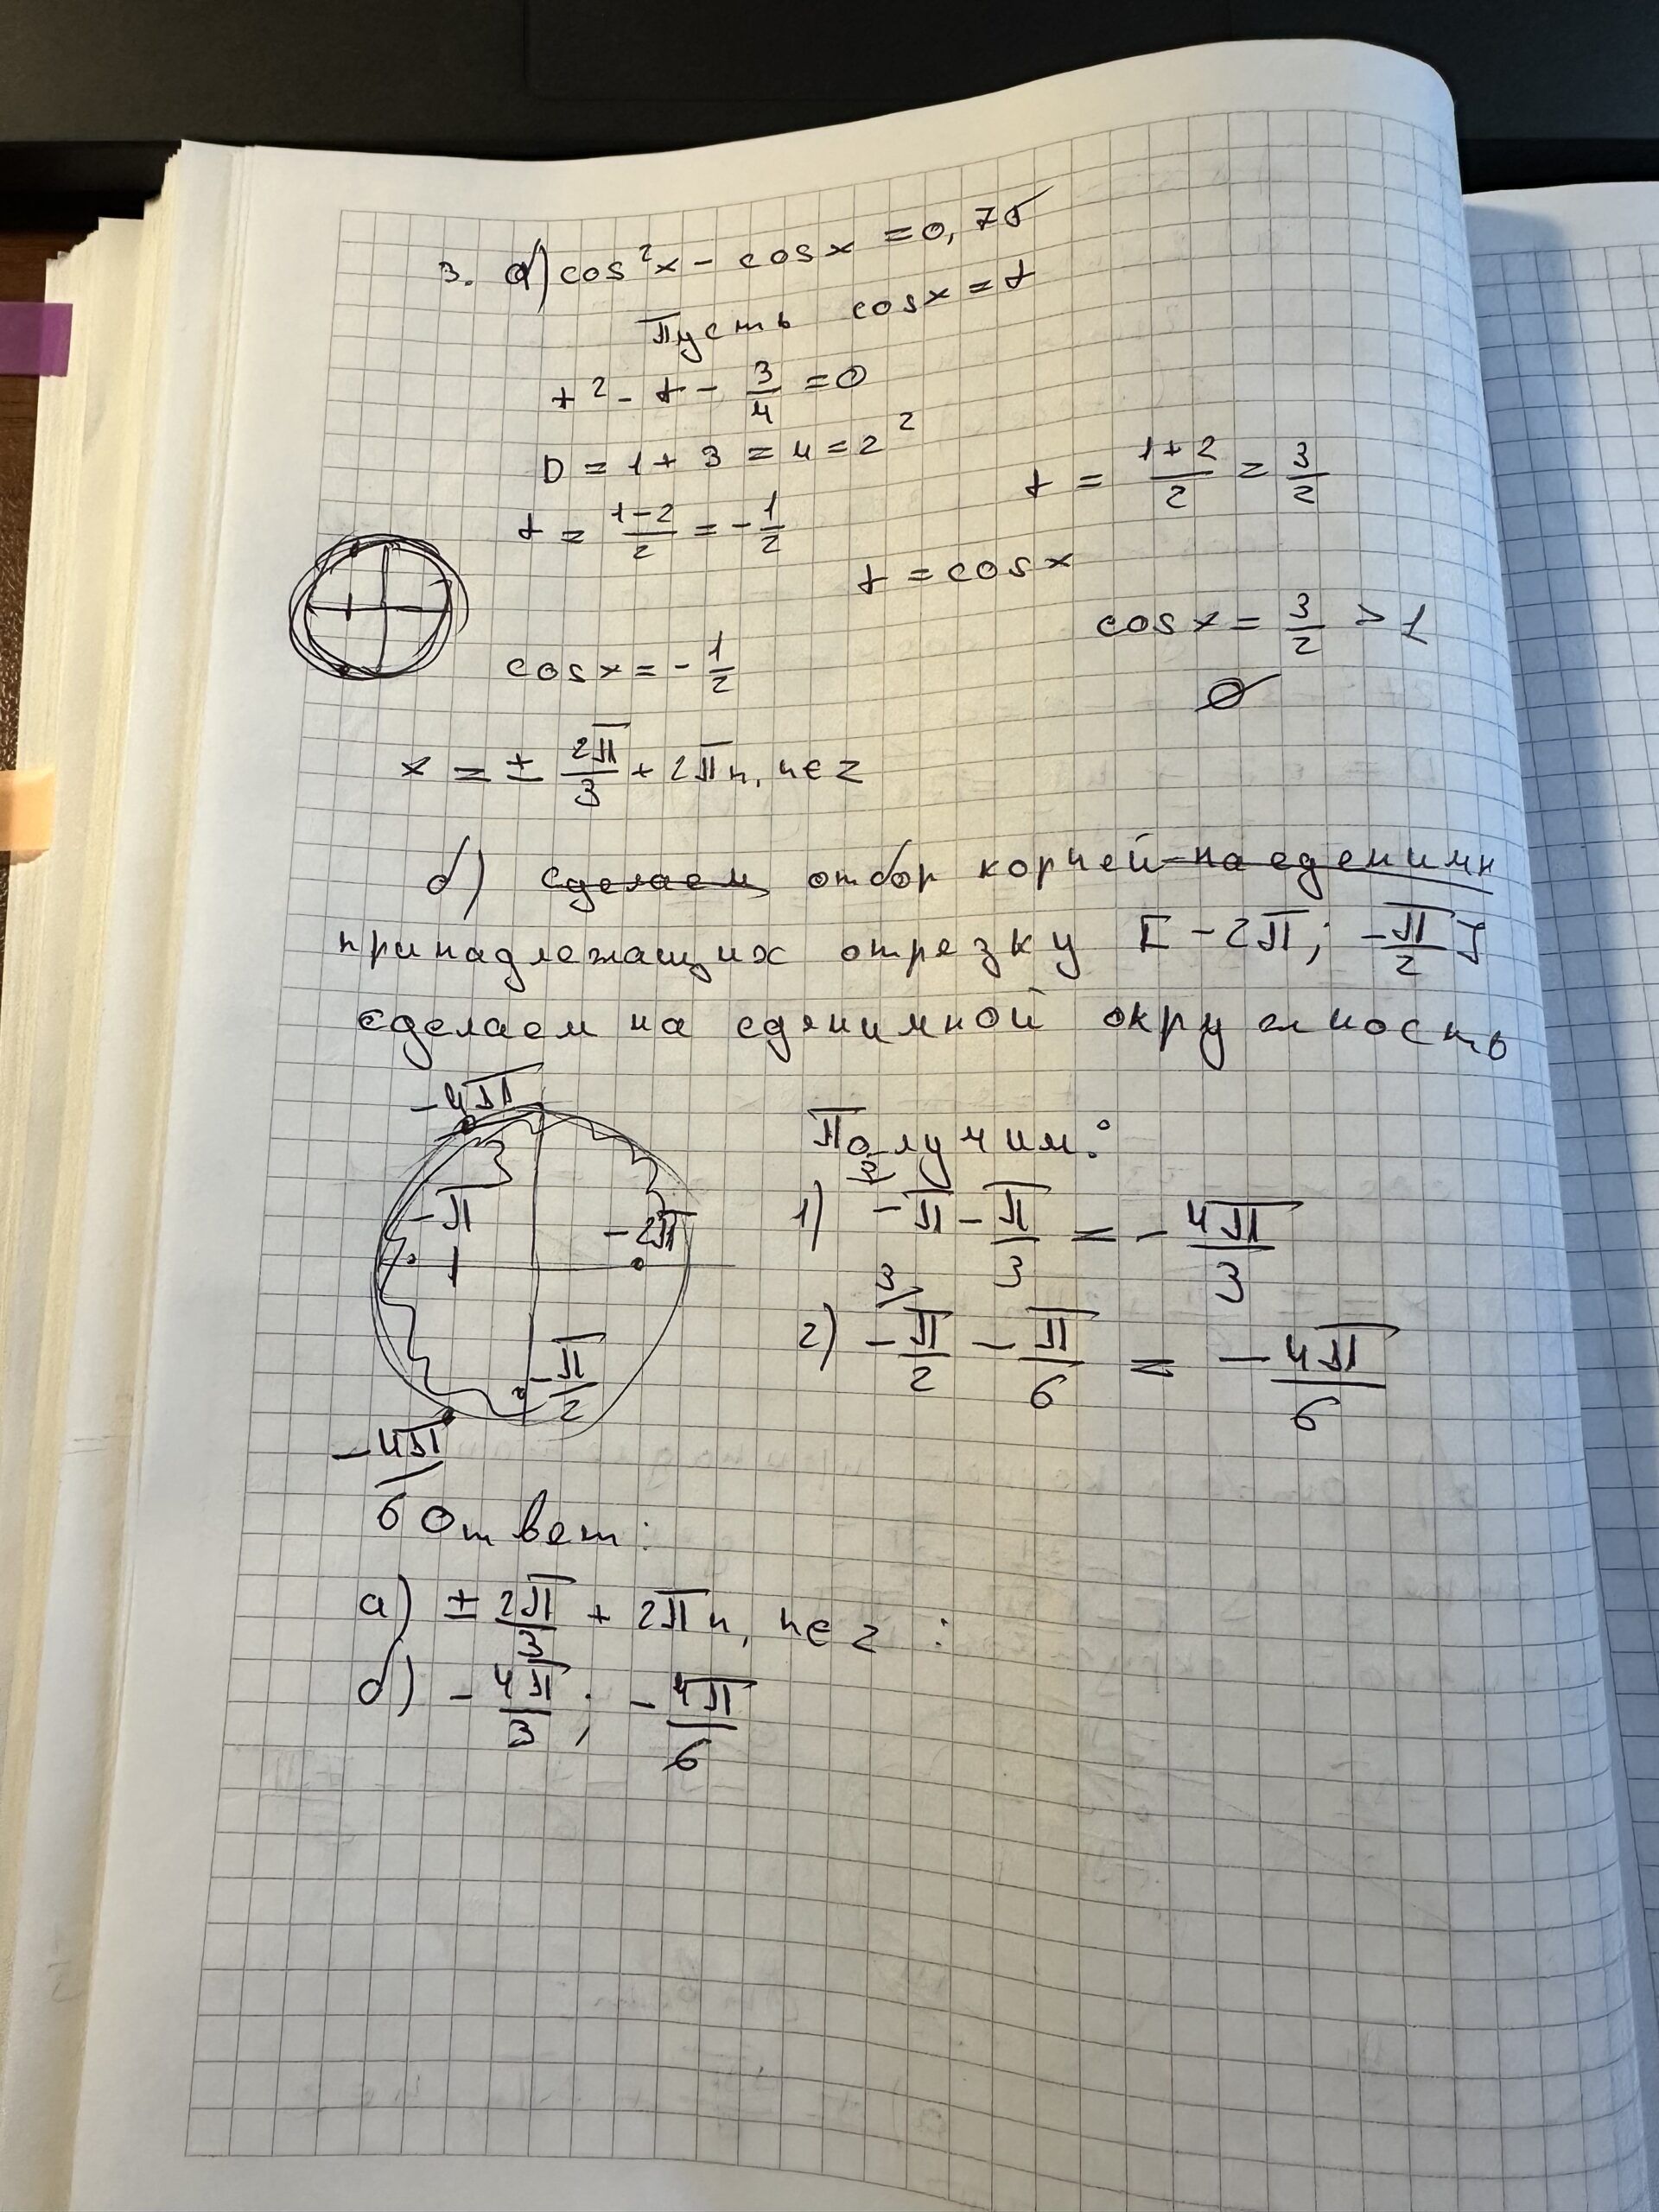 3. а) cos²x - cosx = 0,75
Пусть cosx = t
t² - t - 3/4 = 0
D = 1 + 3 = 4 = 2²
t = (1-2)/2 = -1/2
t = (1+2)/2 = 3/2
t = cosx
cosx = -1/2
cosx = 3/2 > 1
∅
x = ± 2π/3 + 2πn, n∈z
б) сделаем отбор корней на еденичн
принадлежащих отрезку [-2π; -π/2]
сделаем на еденичной окружность
-4π
3
-π
-2π
-π/2
-4π/6
Получим:
1) -π - π/3 = -4π/3
2) -π/2 - π/6 = -4π/6
Ответ:
а) ± 2π/3 + 2πn, n∈z ;
б) -4π/3 ; -4π/6